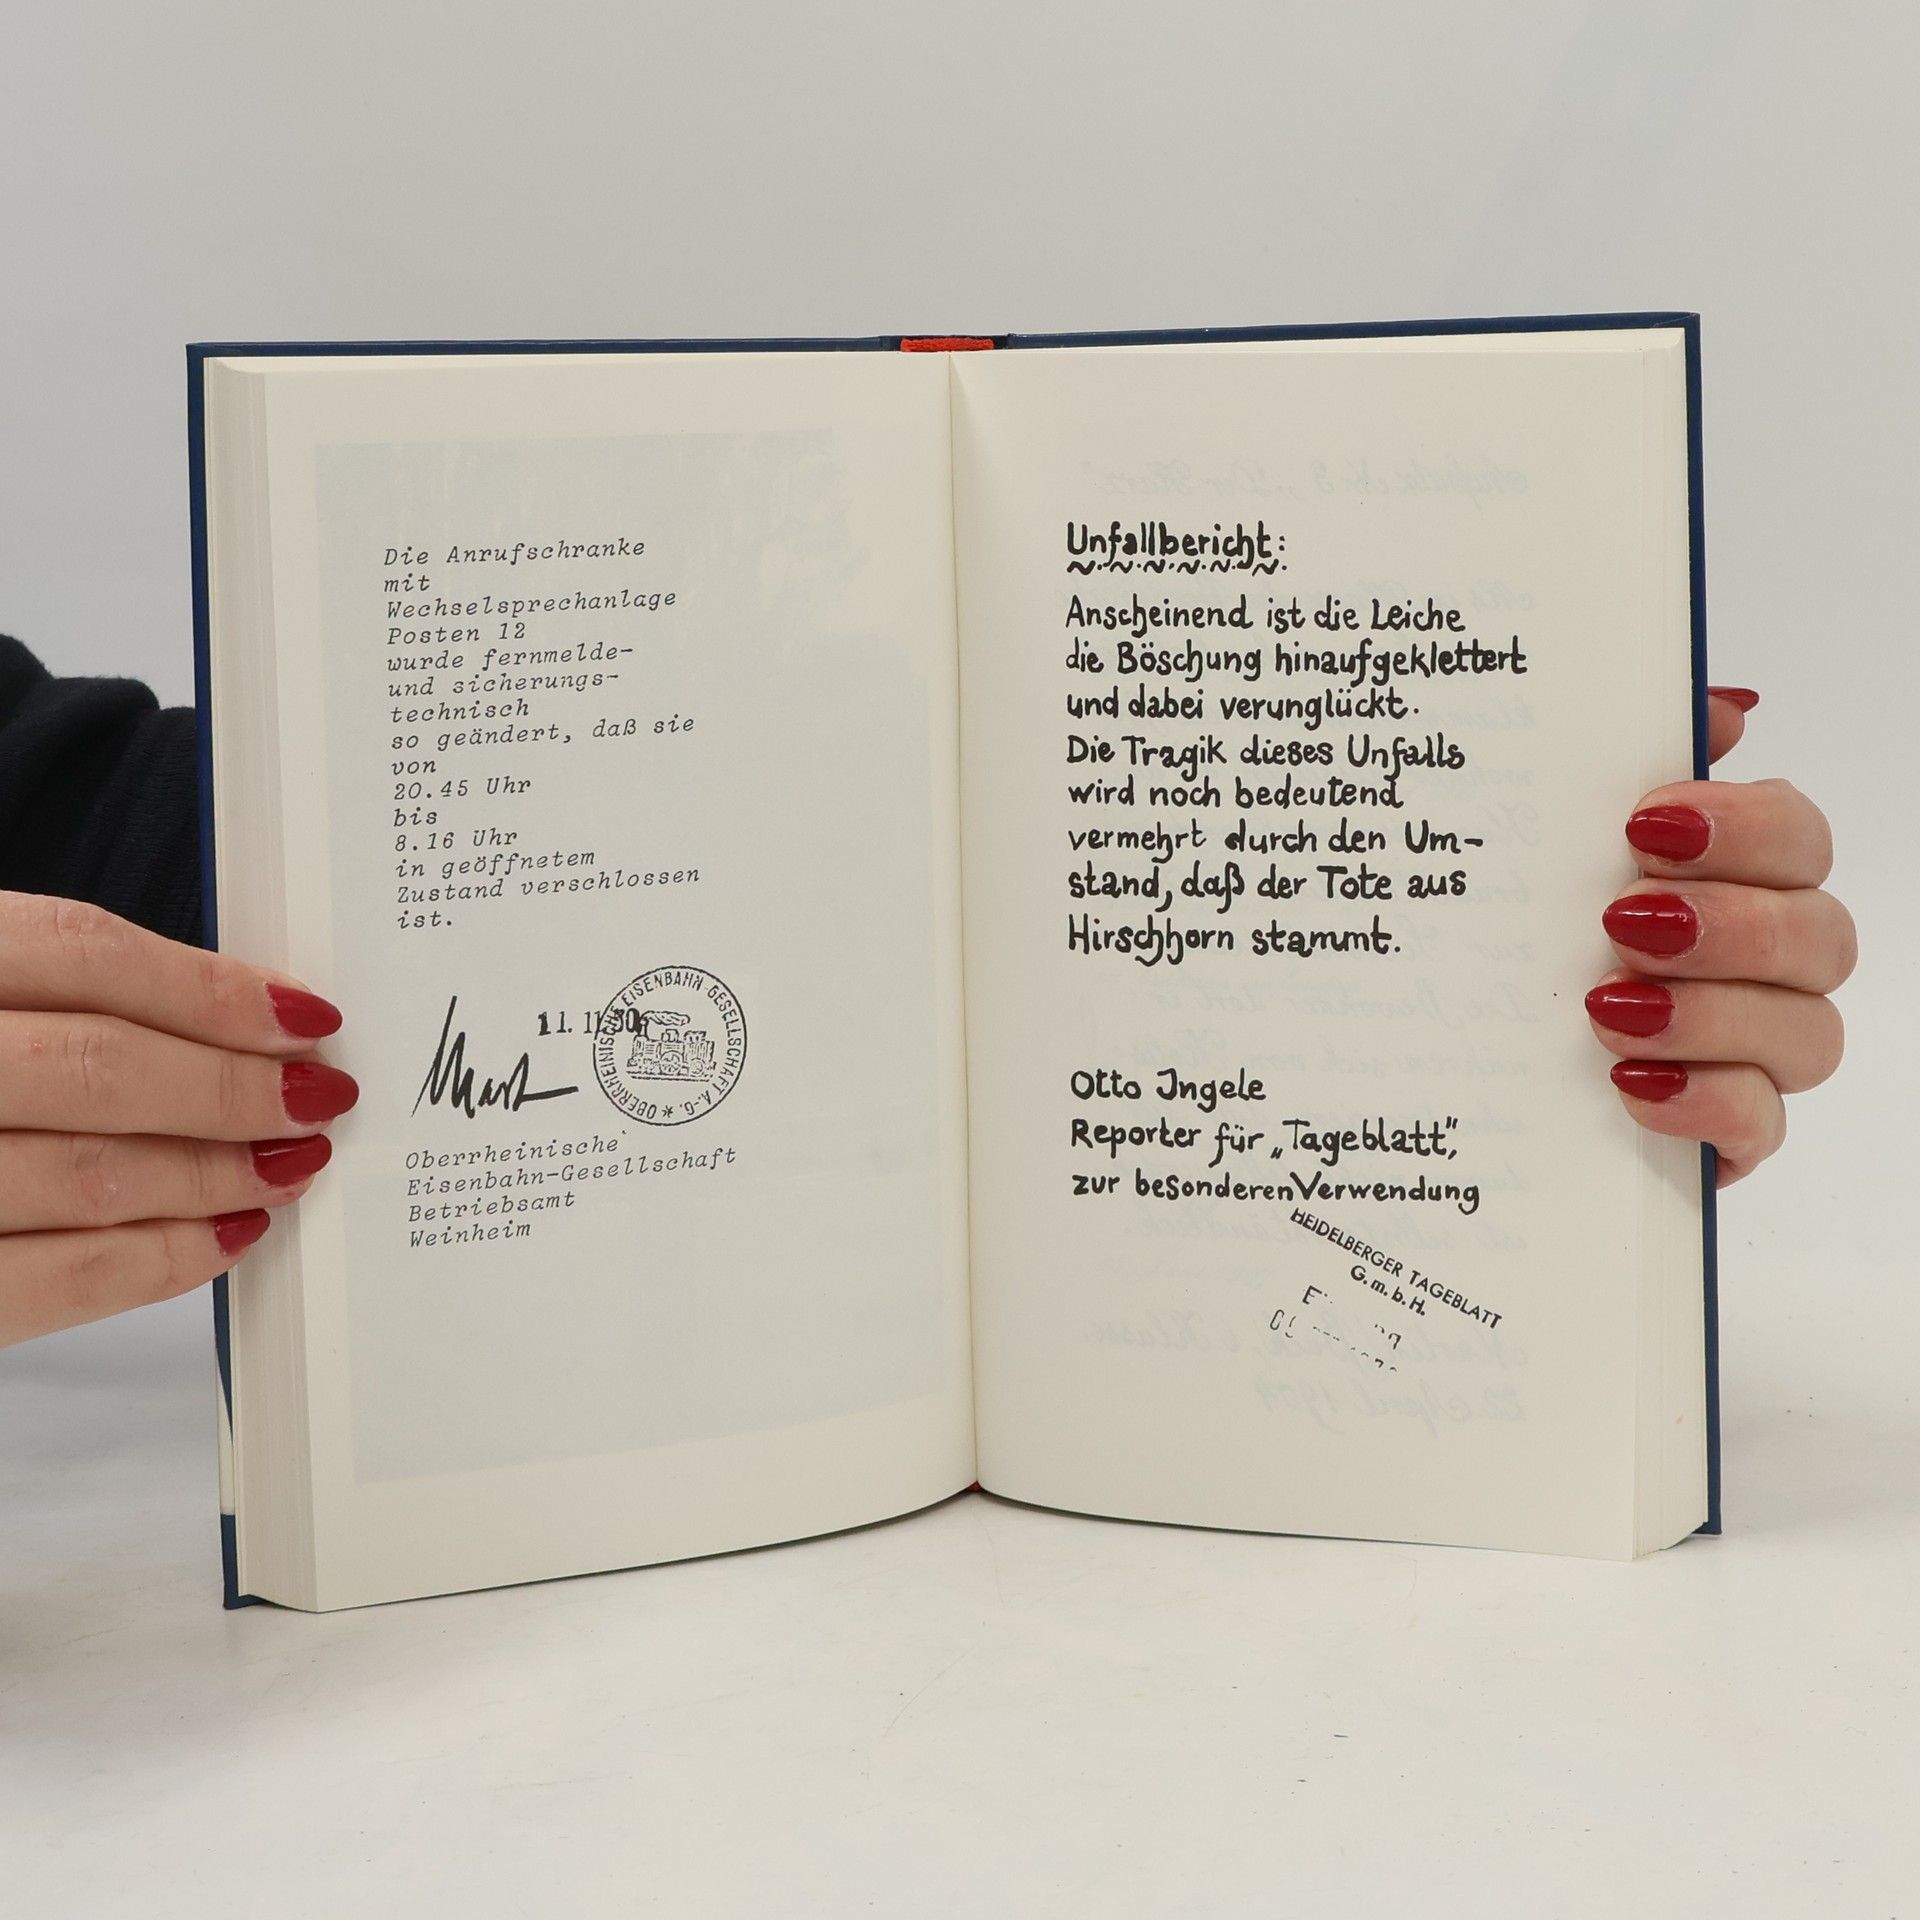 Die Anrufschranke
mit
Wechselsprechanlage
Posten 12
wurde fernmelde-
und sicherungs-
technisch
so geändert, daß sie
von
20.45 Uhr
bis
8.16 Uhr
in geöffnetem
Zustand verschlossen
ist.
OBERRHEINISCHE EISENBAHN-GESELLSCHAFT A.-G.
Oberrheinische
Eisenbahn-Gesellschaft
Betriebsamt
Weinheim
Unfallbericht:
Anscheinend ist die Leiche
die Böschung hinaufgeklettert
und dabei verunglückt.
Die Tragik dieses Unfalls
wird noch bedeutend
vermehrt durch den Um-
stand, daß der Tote aus
Hirschhorn stammt.
Otto Ingele
Reporter für „Tageblatt",
zur besonderen Verwendung
HEIDELBERGER TAGEBLATT
G.m.b.H.